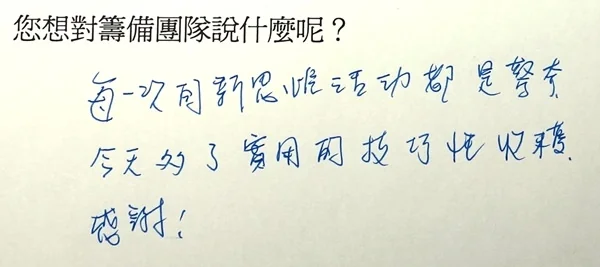 您想對籌備團隊說什麼呢？
每一次自新思惟活動都是驚奇
今天多了實用的技巧性收穫
感謝！